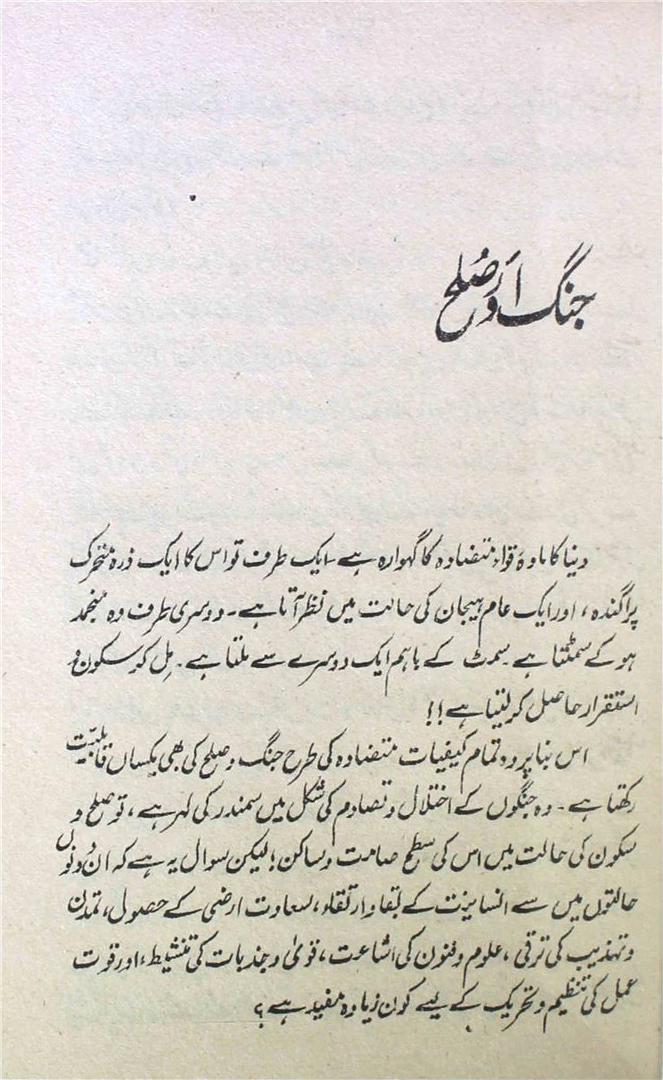 جنگ اور صلح
دنیا کا مادہ قواء متضادہ کا گہوارہ ہے۔ ایک طرف تو اس کا ایک ذرہ متحرک
پراگندہ، اور ایک عام ہیجان کی حالت میں نظر آتا ہے۔ دوسری طرف وہ منجمد
ہو کے سمٹتا ہے۔ سمٹ کے باہم ایک دوسرے سے ملتا ہے۔ مل کر سکون و
استقرار حاصل کر لیتا ہے!!
اس بنا پر وہ تمام کیفیات متضادہ کی طرح جنگ و صلح کی بھی یکساں قابلیت
رکھتا ہے۔ وہ جنگوں کے اختلال و تصادم کی شکل میں سمندر کی لہر ہے، تو صلح و
سکون کی حالت میں اس کی سطح صامت و ساکن! لیکن سوال یہ ہے کہ ان دونوں
حالتوں میں سے انسانیت کے بقاء و ارتقاء، سعادت ارضی کے حصول، تمدن
و تہذیب کی ترقی، علوم و فنون کی اشاعت، قویٰ و جذبات کی تنشیط، اور قوت
عمل کی تنظیم و تحریک کے لیے کون زیادہ مفید ہے؟